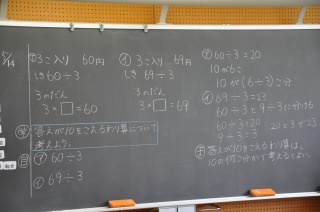 5/14
㋐3こ入り 60円
しき 60÷3
3のだん
3×□=60
㋑3こ入り 69円
しき 69÷3
3のだん
3×□=69
㋐60÷3=20
10が6こ
10が(6÷3)こ分
㋑69÷3=23
60÷3と9÷3に分ける
60÷3=20
9÷3=3
20と3で23
答えが10をこえるわり算について
考えよう。
㋐60÷3
㋑69÷3
答えが10をこえるわり算は、
10の何こ分かで考えるとよい。